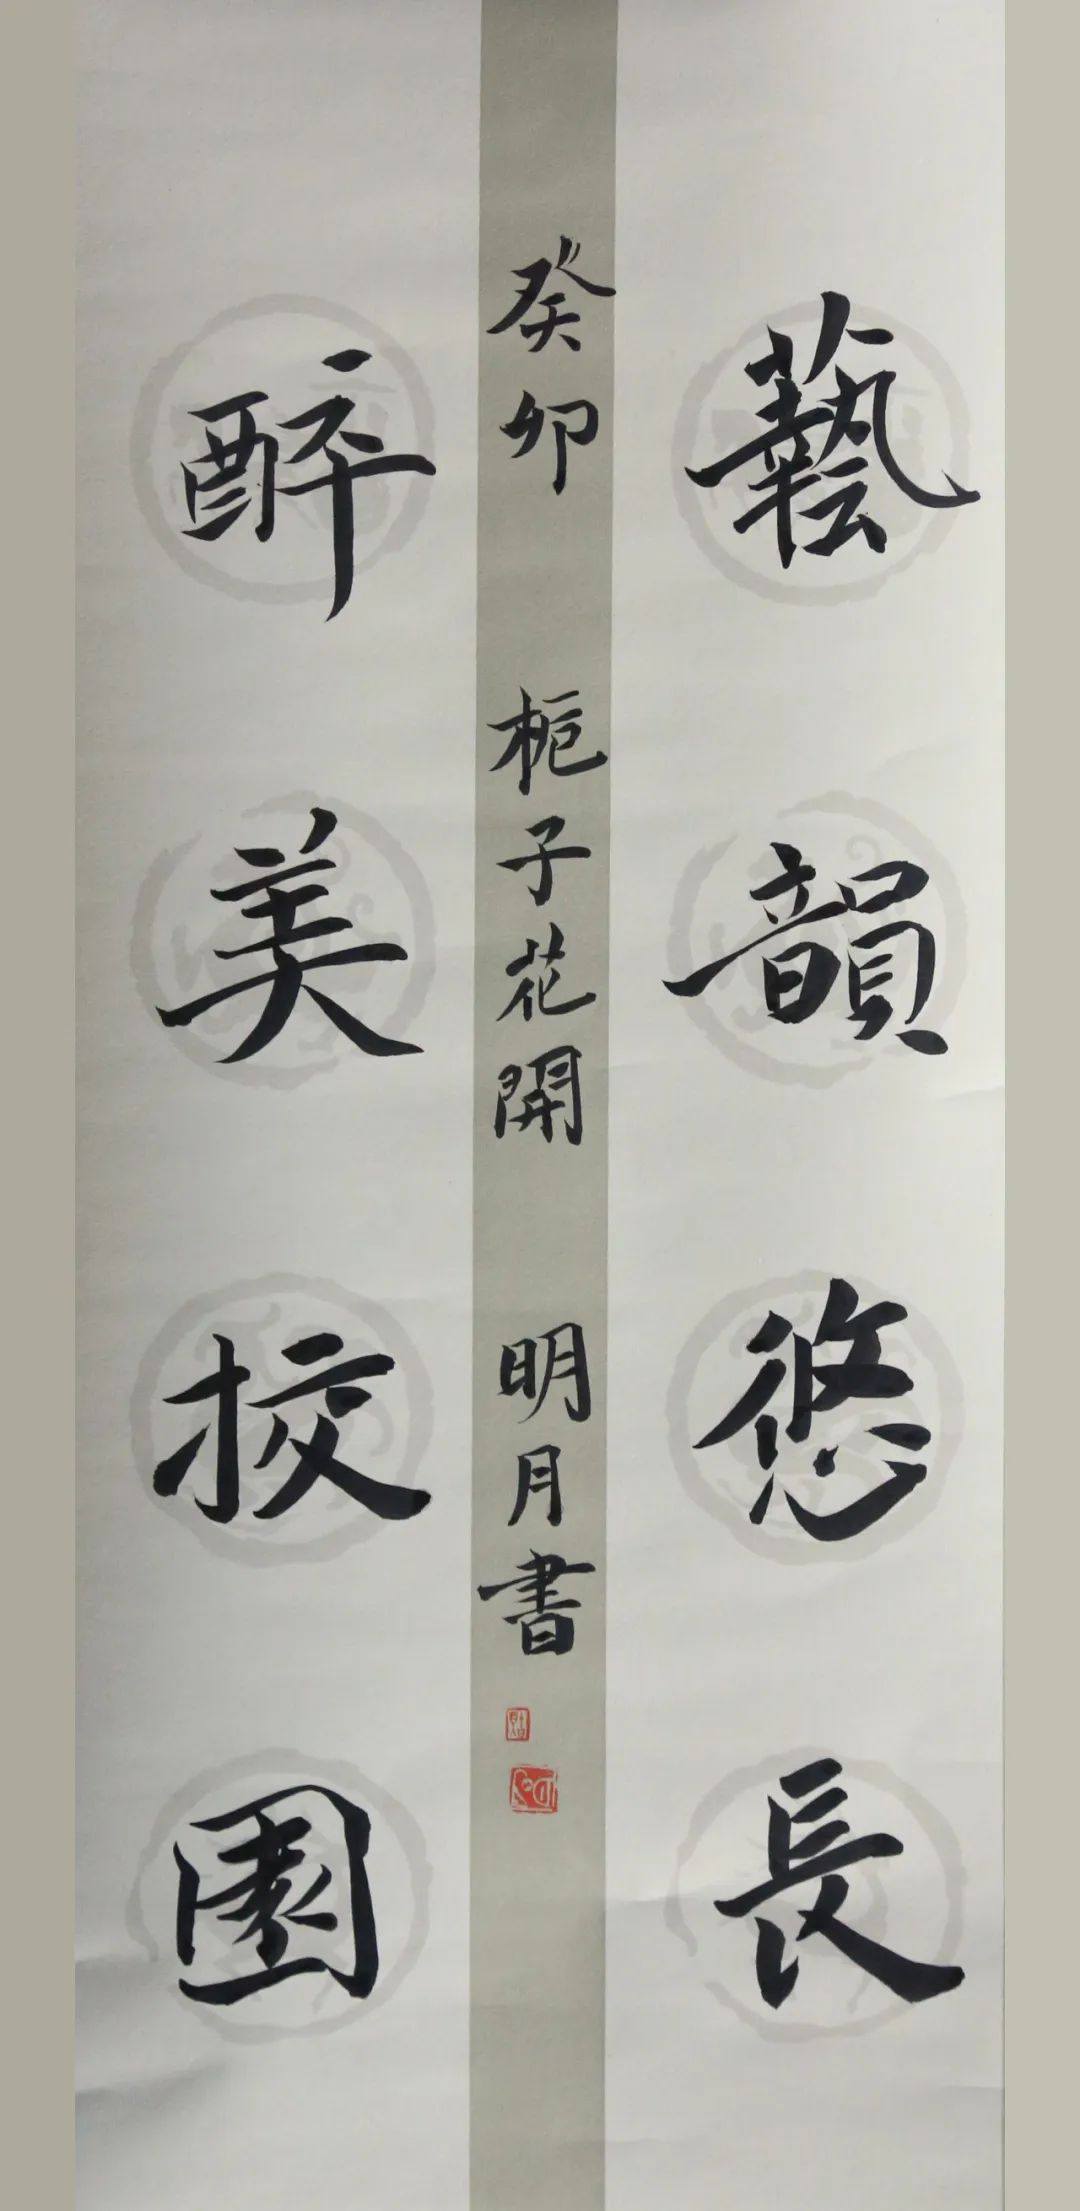 藝韻悠長
癸卯 栀子花開 明月書
醉美校園